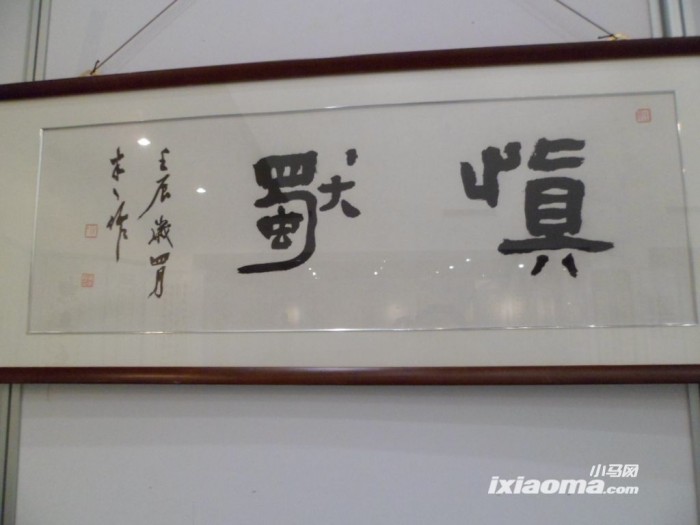 愼獨
壬辰歲四月
作
小马网
ixiaoma.com